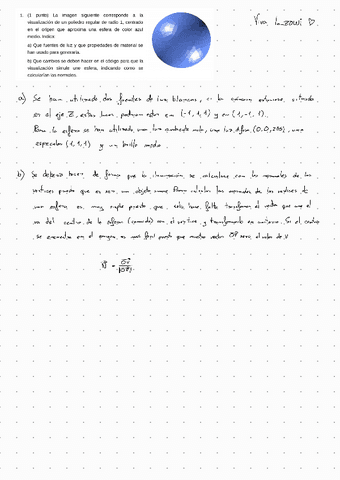 1. (1 punto) La imagen siguiente corresponde a la
visualización de un poliedro regular de radio 1, centrado
en el origen que aproxima una esfera de color azul
medio. Indica:
a) Que fuentes de luz y que propiedades de material se
han usado para generarla.
b) Que cambios se deben hacer en el código para que la
visualización simule una esfera, indicando como se
calcularían las normales.
Viva
a) Se han utilizado dos fuentes de luz blancas, en la
en el eje Z, estas luces podrían estar en (-1,1,1) y en (1,-1,1).
Para la esfera se han utilizado una luz ambiente nula, una luz difusa (0,0,255), una
especular (1,1,1) y un brillo medio.
b) Se debería hacer de forma que la iluminación se calculase con las normales de los
vértices puesto que es un objeto suave. Para calcular las normales de los vértices de
una esfera es muy simple puesto que solo hace falta transformar el vector que une el
del centro de la esfera con el vértice y transformarlo en unitario. Si el centro
se encuentra en el origen, es más fácil puesto que nuestro vector OP será el valor de V